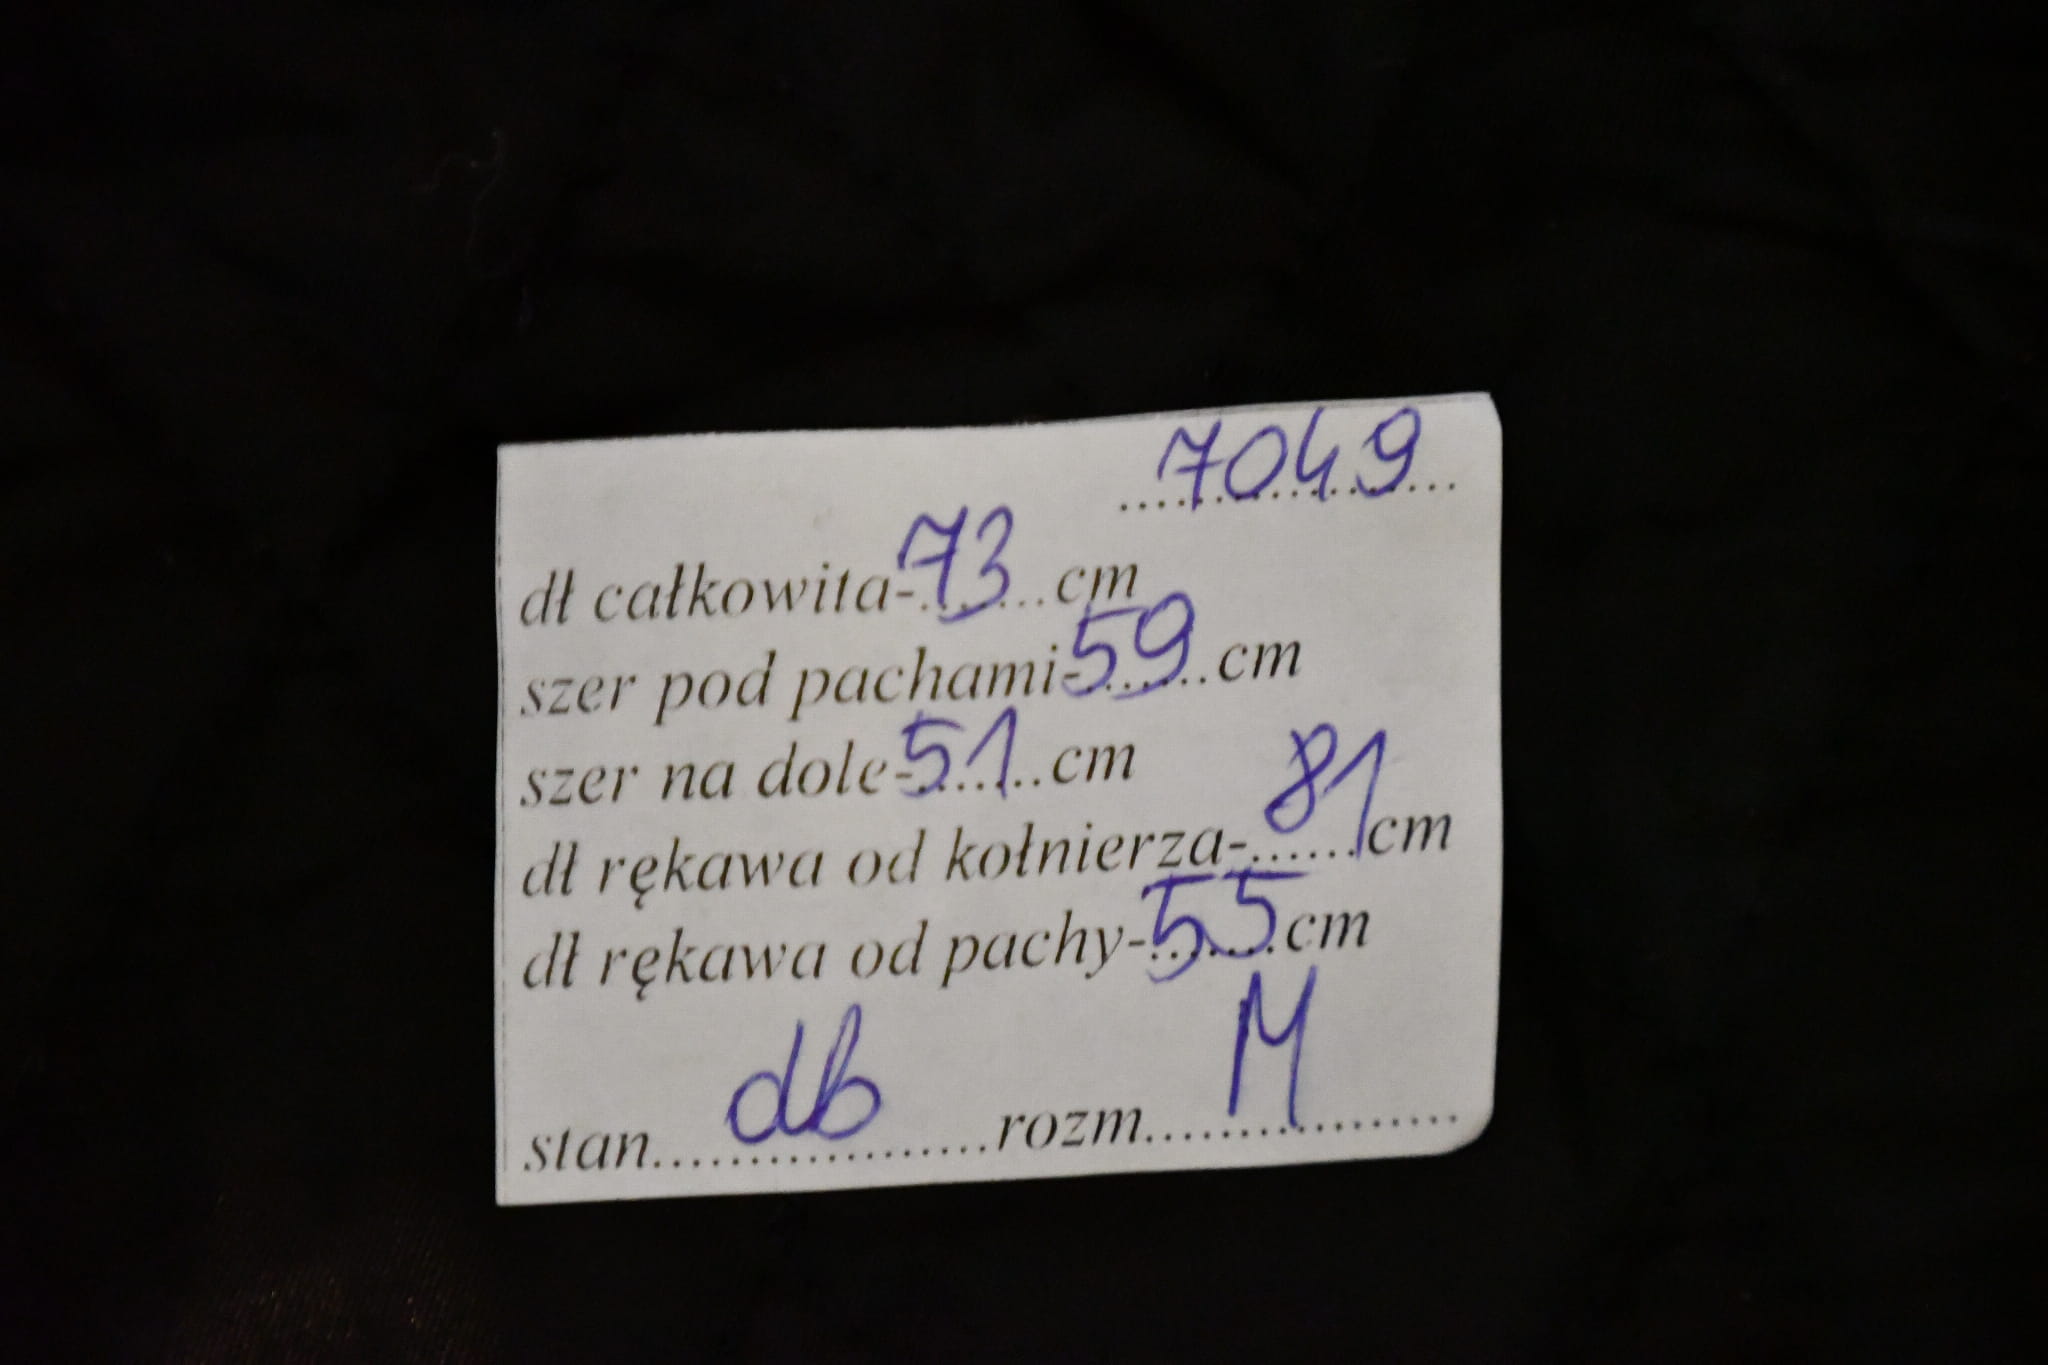 7049
dł całkowita-73cm
szer pod pachami-59cm
szer na dole-51cm
dł rękawa od kołnierza-81cm
dł rękawa od pachy-55cm
stan db rozm M